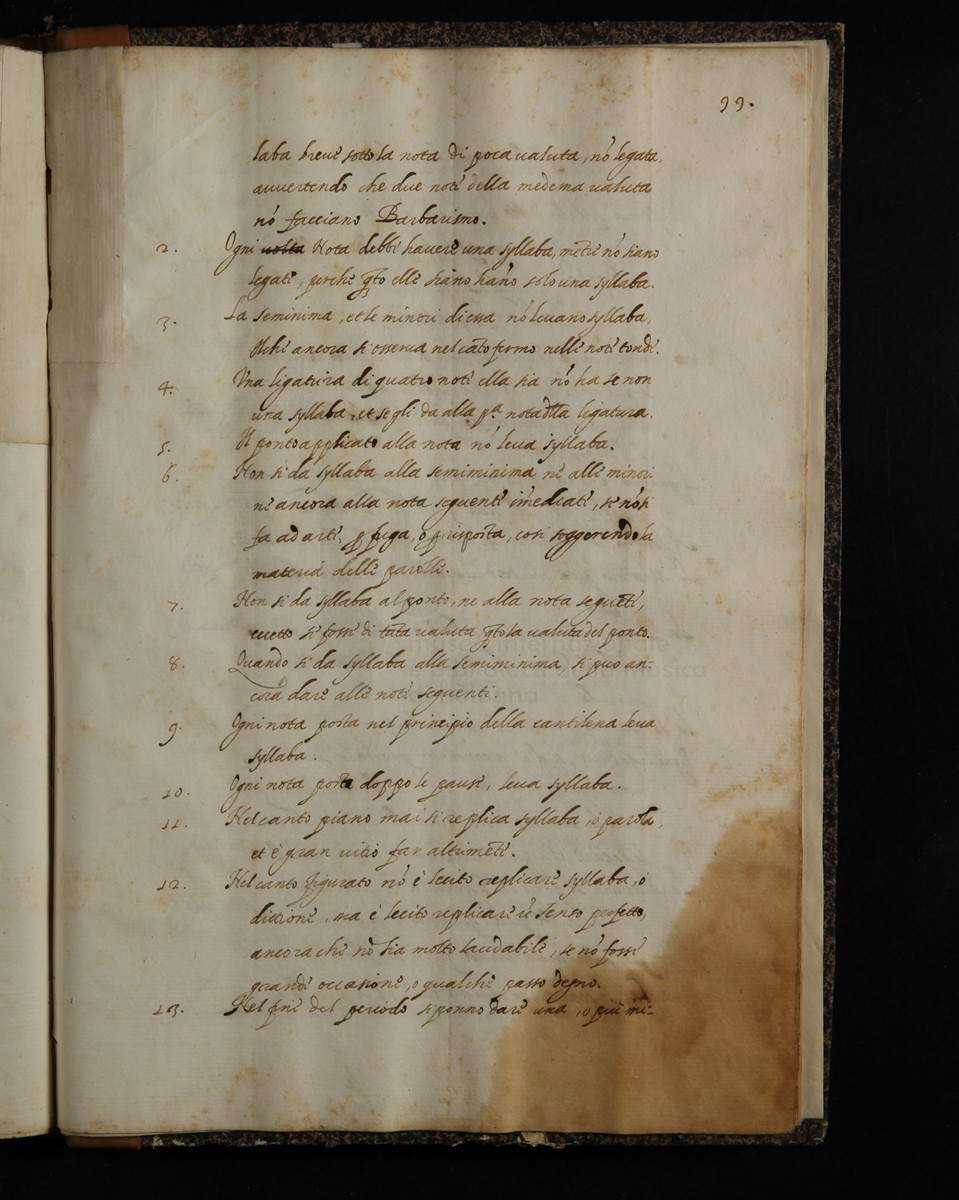 99.
laba breve sotto la nota di poca valuta, nó legata,
avvertendo che due note della medema valuta
nó facciano Barbarismo.
2. Ogni volta Nota debbe havere una syllaba, metre nó siano
legate, perche qto elle siano hano solo una syllaba.
3. La seminima, et le minori di essa nó levano syllaba,
Ilche ancora si osserva nel cato fermo nelle note tonde.
4. Una ligatura di quatro note ella sia nó ha se non
una syllaba, et se gli da alla pa. nota dlla ligatura.
5. Il ponto applicato alla nota nó leva syllaba.
6. Non si da syllaba alla semiminima ne alle minori
ne ancora alla nota seguente imediate, se nó si
fa ad arte, p fuga, o p risposta, cosi soggerendo la
materia delle parolle.
7. Non si da syllaba al ponto, ne alla nota seguete,
ecetto se fosse di tata valuta qto la valuta del ponto.
8. Quando si da syllaba alla semiminima, si puo an=
cora dare alle note seguenti.
9. Ogni nota posta nel principio della cantilena leva
syllaba.
10. Ogni nota posta doppo le pause, leva syllaba.
11. Nel canto piano mai si replica syllaba, o parola,
et è gran vitio far altrimete.
12. Nel canto figurato nó è lecito replicare syllaba, o
dittione, ma è lecito replicare ū senso perfetto,
ancora che nó sia molto laudabile, se nó fosse
grande occasione, o qualche passo degno.
13. Nel fine del periodo si ponno dare una, o più mi=